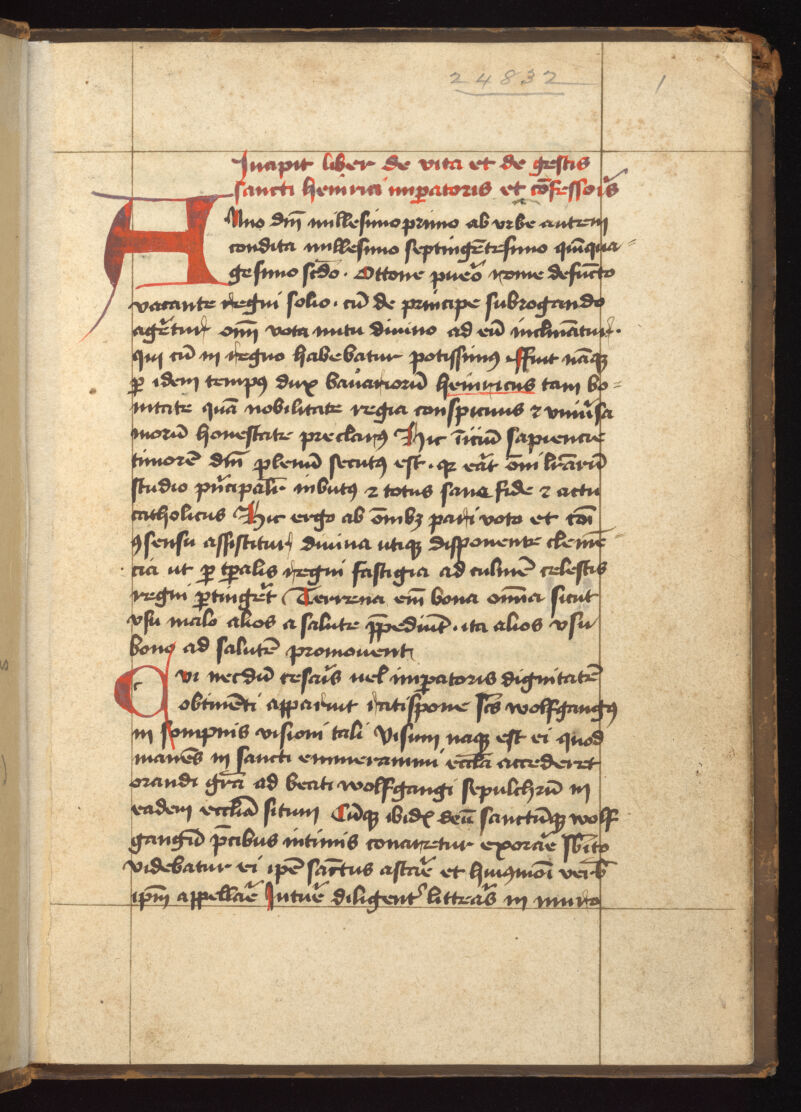 24832
1
Incipit liber de vita et de gestis
sancti heinrici imꝑatoris et cōfessoris
Anno dnī millesimo primo ab vrbe autem
condita millesimo septingētesimo quīqua=
gesimo scd̄o. Ottone puero nomine defūcto
vacante regni solio. cū de principe subrogando
ageretur om̄i vota nutu diuino ad eū inclinātur.
qui cū in regno habebatur potissimꝰ. ffuit nāqꝫ
ꝑ idem tempꝰ dux bauariorū heinricus tam bo=
nitate quā nobilitate regia conspicuus ⁊ vniūsa
morū honestate preclarꝰ Hic īiciū sapiencie
timorē dnī plenū secutꝰ est. qꝛ erat om̄i lr̄arū
studio pn̄cipali inbutꝰ ⁊ totus sane fide ⁊ actu
catholicus Hic ergo ab om̄ibꝫ pari voto et cōi
ꝯsensu assistitur diuina utiqꝫ disponente clemē=
cia ut ꝑ tꝑalis regni fastigia ad culmē celestis
regni ꝑtingeret Terrena em̄ bona om̄ia sicut
vsu malo alios a salute p̄pediūt. ita alios vsu
bono ad salutē promouent
CVi necdū cesaris uel imꝑatoris dignitatē
obtinēti apparuit ratispone scs̄ wolfgangꝰ
in sompnis visioni tali Visum naqꝫ est ei quod
manēs in sancti emmerammi eccl̄ia accederet
orandi gr̄a ad beati wolfgangi sepulchrū in
eadem eccl̄ia situm Cūqꝫ ibidē deū sanctūqꝫ wolf
gangū p̄cibus intimis conaretur exorare sb̄ito
videbatur ei ipse sanctus astare et huiꝰmōi verb̄
ipm̄ appellare Intuere diligenter litteras in muro